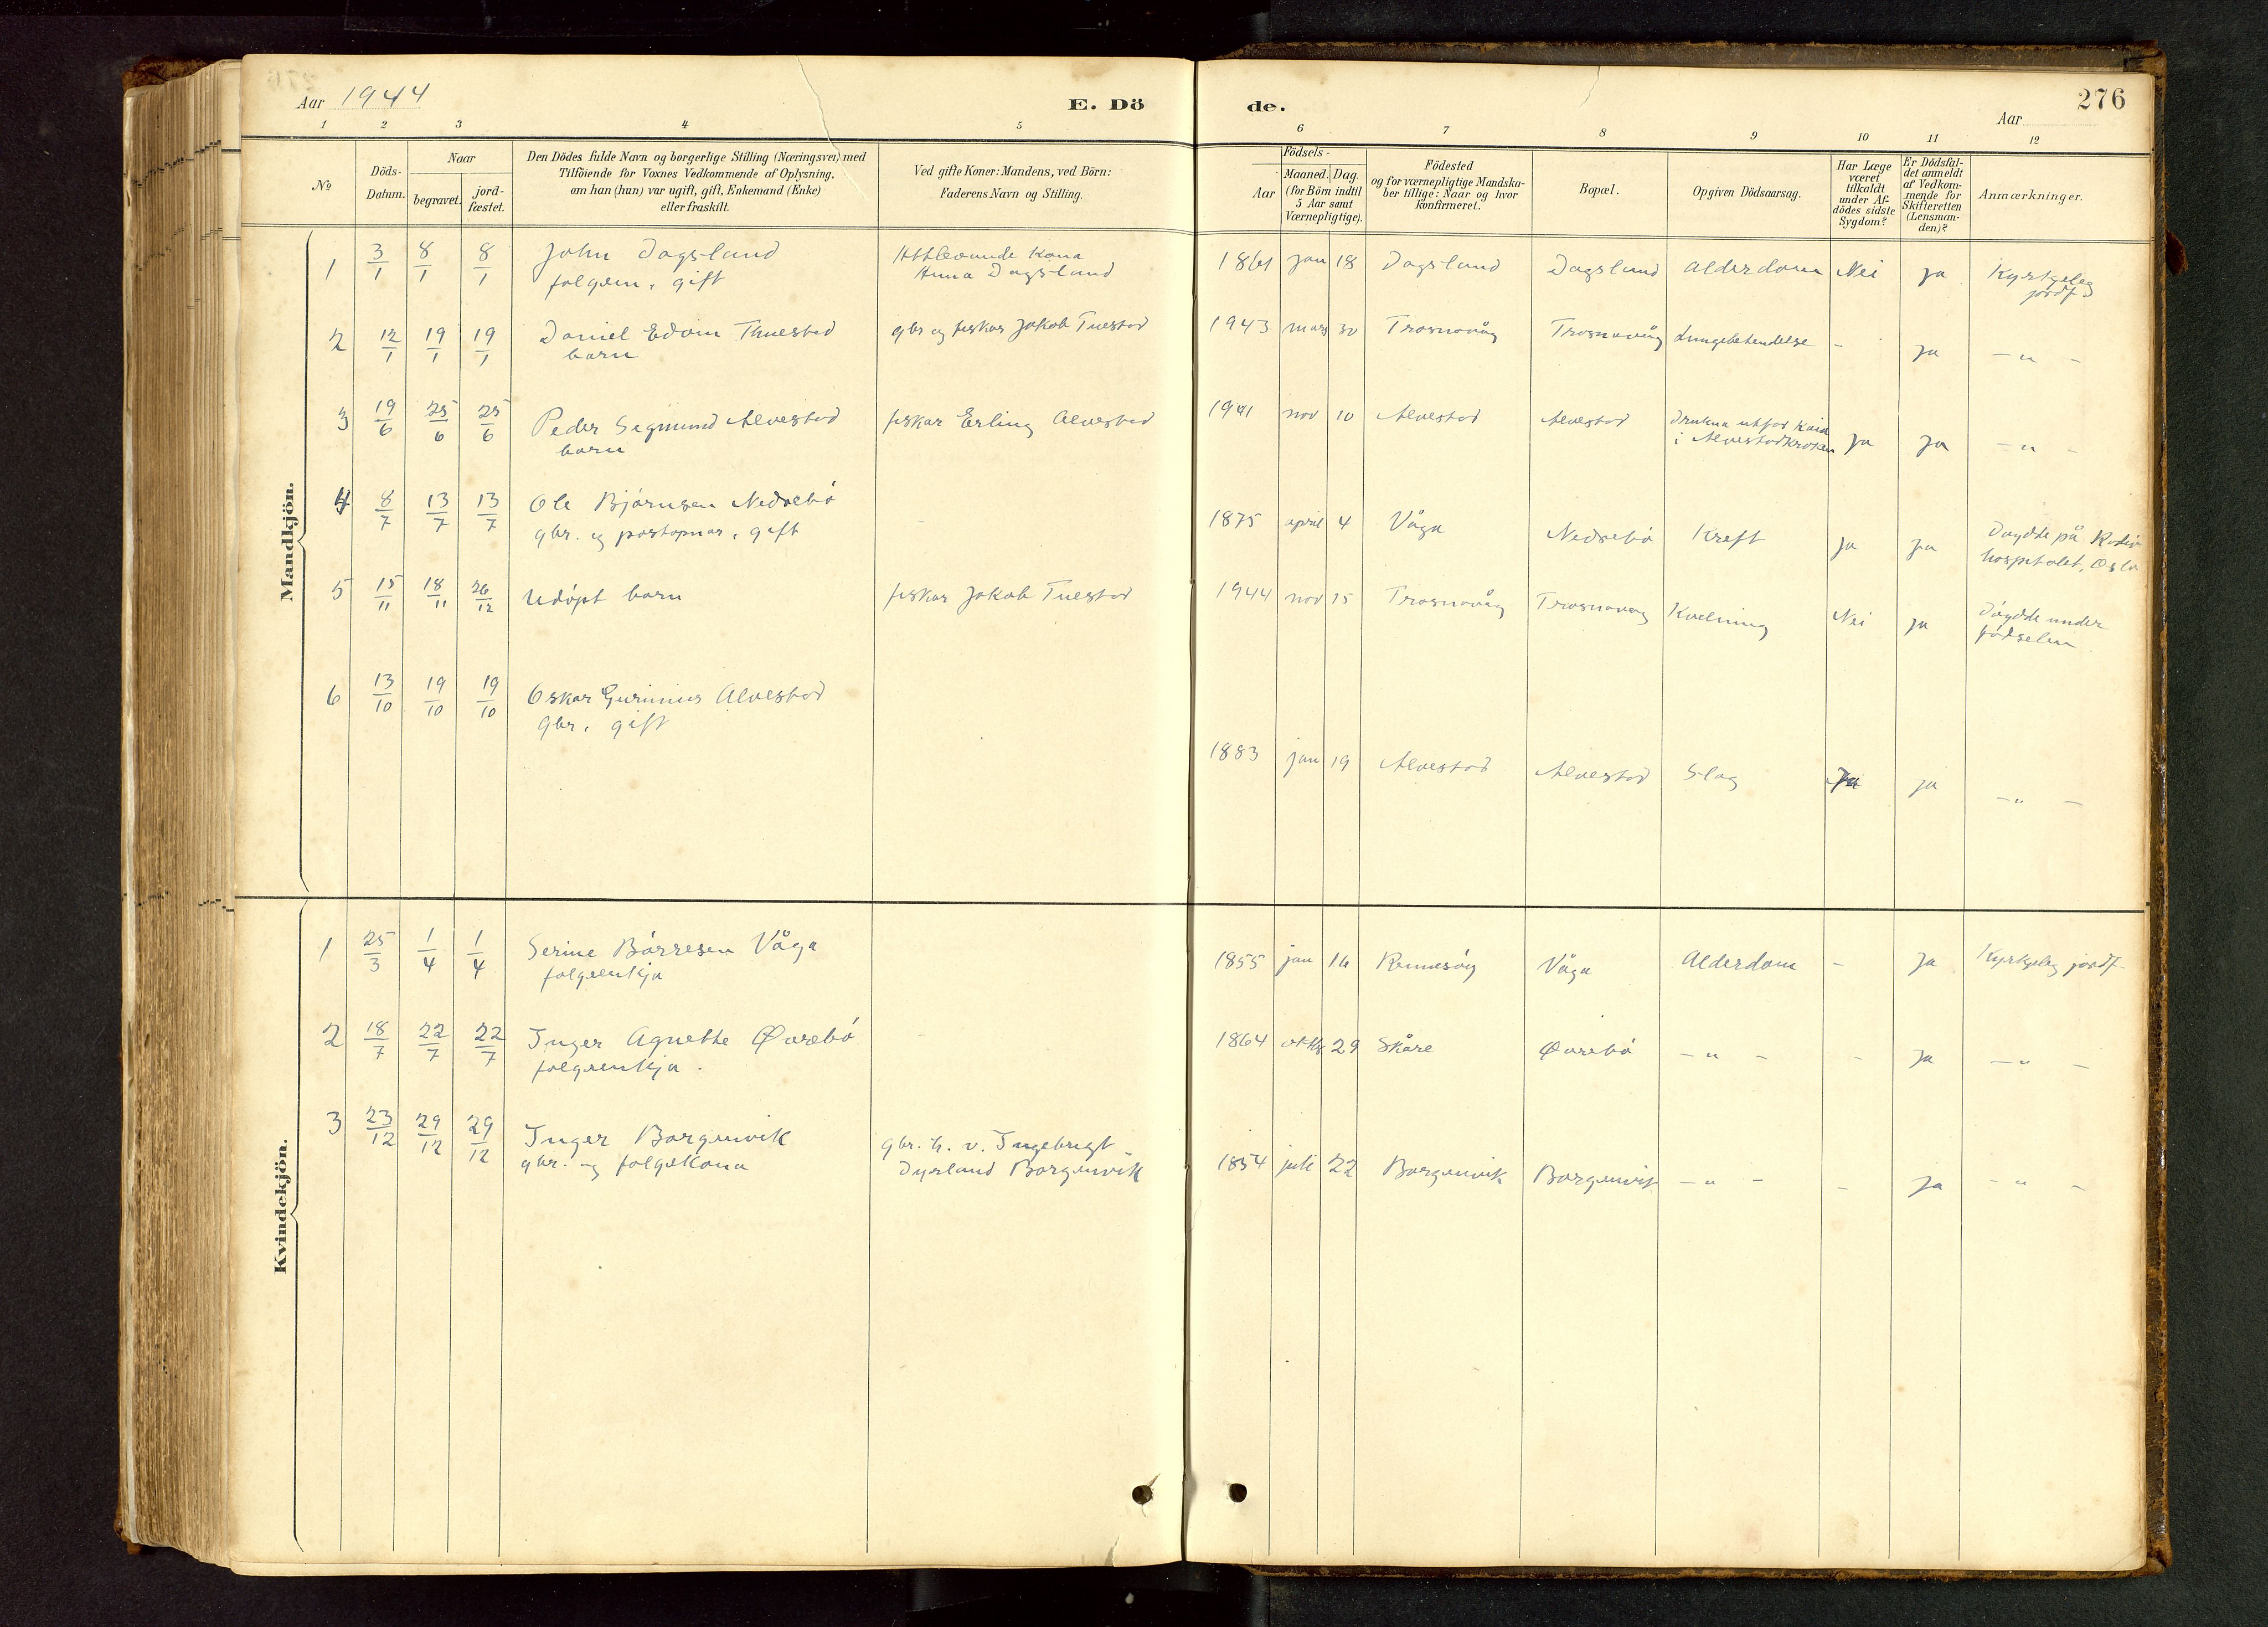 Aar 1944
E. Dö
de.
Aar
276
1 2 3 4 5 6 7 8 9 10 11 12
No
Döds-
Datum.
Naar
begravet.
jord-
fæstet.
Den Dödes fulde Navn og borgerlige Stilling (Næringsvei) med
Tilföiende for Voxnes Vedkommende af Oplysning.
om han (hun) var ugift, gift, Enkemand (Enke)
eller fraskilt.
Ved gifte Koner: Mandens, ved Börn:
Faderens Navn og Stilling.
Födsels-
Aar
Maaned. Dag.
(for Börn indtil
5 Aar samt
Værnepligtige).
Födested
og for værnepligtige Mandska-
ber tillige: Naar og hvor
konfirmeret.
Bopæl.
Opgiven Dödsaarsag.
Har Læge
været
tilkaldt
under Af-
dödes sidste
Sygdom?
Er Dödsfal-
det anmeldt
af Vedkom-
mende for
Skifteretten
(Lensman-
den)?
Anmærkninger.
Mandkjön.
1 3/1 8/1 8/1 John Dagsland
folgem, gift
Attlevande kona
Anna Dagsland
1861 jan 18 Dagsland Dagsland Alderdom Nei ja Kyrkjeleg
jordf
2 12/1 19/1 19/1 Daniel Edom Thuestad
barn
gbr og fiskar Jakob Tuestad
1943 mars 30 Trosnavåg Trosnavåg Lungebetendelse - ja - " -
3 19/6 25/6 25/6 Peder Sigmund Alvestad
barn
fiskar Erling Alvestad
1941 nov 10 Alvestad Alvestad drukna utfor kaien
i Alvestadkroken ja ja - " -
4 8/7 13/7 13/7 Ole Bjørnsen Nedrebø
gbr. og postopnar, gift
1875 april 4 Våga Nedrebø Kreft ja ja Døydde på Radium
hospitalet, Oslo
5 15/11 18/11 26/12 Udøpt barn
fiskar Jakob Tuestad
1944 nov 15 Trosnavåg Trosnavåg Kvelning Nei ja Døydde under
fødselen.
6 13/10 19/10 19/10 Oskar Gurinius Alvestad
gbr, gift
1883 jan 19 Alvestad Alvestad Slag Ja ja - " -
Kvindekjön.
1 25/3 1/4 1/4 Serine Børresen Våga
folgeenkja
1855 jan 16 Rennesøy Våga Alderdom - ja Kyrkjeleg jordf
2 18/7 22/7 22/7 Inger Agnethe Øvrebø
folgeenkja.
1864 oktb 29 Skåre Øvrebø - " - - ja - " -
3 23/12 29/12 29/12 Inger Borgenvik
gbr. og folgekona
gbr. h. v. Ingebrigt
Dyrland Borgenvik
1854 juli 22 Borgenvik Borgenvik - " - - ja - " -